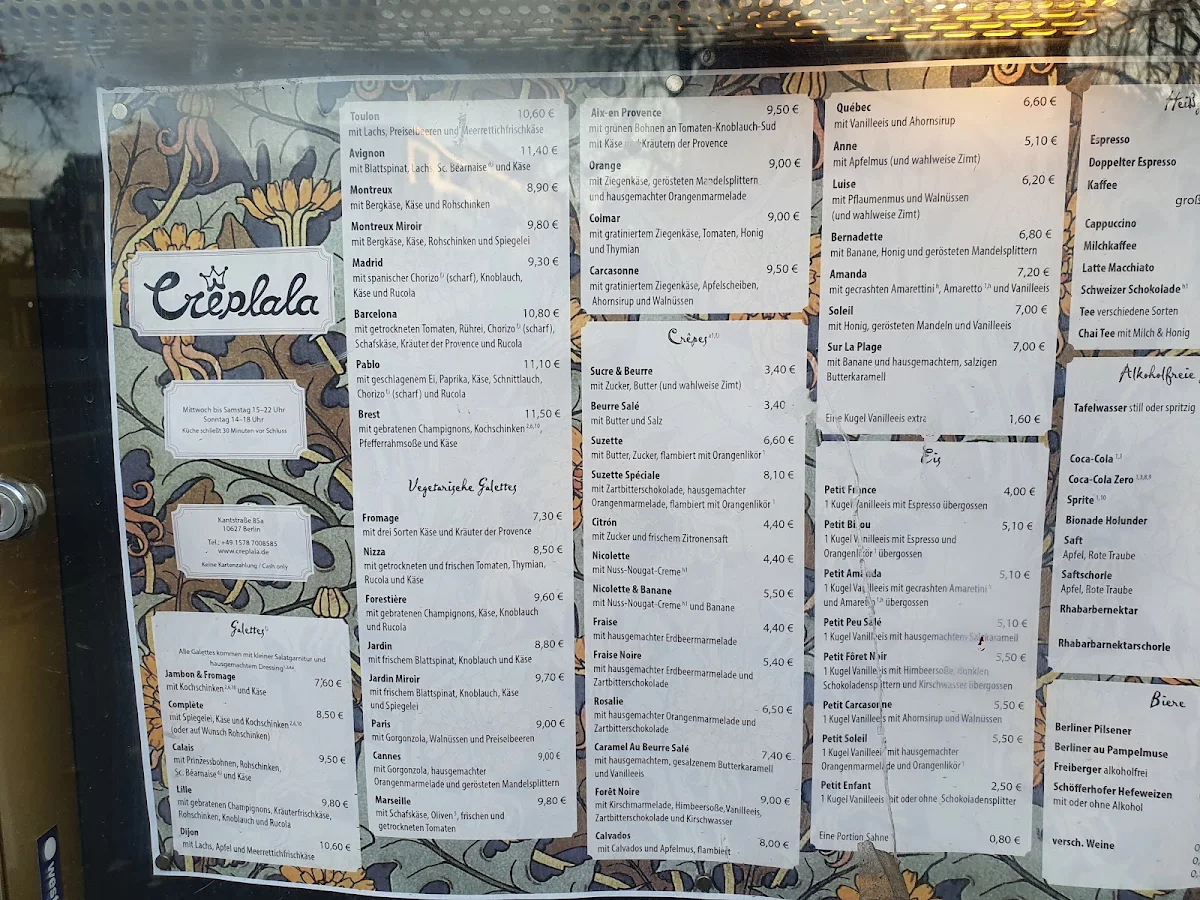 Crêplala
Mittwoch bis Samstag 15–22 Uhr
Sonntag 14–18 Uhr
Küche schließt 30 Minuten vor Schluss
Kantstraße 85a
10627 Berlin
Tel.: +49 1578 7008585
www.creplala.de
Keine Kartenzahlung / Cash only
Galettes
Alle Galettes kommen mit kleiner Salatgarnitur und
hausgemachtem Dressing
Jambon & Fromage 7,60 €
mit Kochschinken 2,6,10 und Käse
Complète 8,50 €
mit Spiegelei, Käse und Kochschinken 2,6,10
(oder auf Wunsch Rohschinken)
Calais 9,50 €
mit Prinzessbohnen, Rohschinken,
Sc. Béarnaise und Käse
Lille 9,80 €
mit gebratenen Champignons, Kräuterfrischkäse,
Rohschinken, Knoblauch und Rucola
Dijon 10,60 €
mit Lachs, Apfel und Meerrettichfrischkäse
Toulon 10,60 €
mit Lachs, Preiselbeeren und Meerrettichfrischkäse
Avignon 11,40 €
mit Blattspinat, Lachs, Sc. Béarnaise und Käse
Montreux 8,90 €
mit Bergkäse, Käse und Rohschinken
Montreux Miroir 9,80 €
mit Bergkäse, Käse, Rohschinken und Spiegelei
Madrid 9,30 €
mit spanischer Chorizo (scharf), Knoblauch,
Käse und Rucola
Barcelona 10,80 €
mit getrockneten Tomaten, Rührei, Chorizo (scharf),
Schafskäse, Kräuter der Provence und Rucola
Pablo 11,10 €
mit geschlagenem Ei, Paprika, Käse, Schnittlauch,
Chorizo (scharf) und Rucola
Brest 11,50 €
mit gebratenen Champignons, Kochschinken 2,6,10,
Pfefferrahmsoße und Käse
Vegetarische Galettes
Fromage 7,30 €
mit drei Sorten Käse und Kräuter der Provence
Nizza 8,50 €
mit getrockneten und frischen Tomaten, Thymian,
Rucola und Käse
Forestière 9,60 €
mit gebratenen Champignons, Käse, Knoblauch
und Rucola
Jardin 8,80 €
mit frischem Blattspinat, Knoblauch und Käse
Jardin Miroir 9,70 €
mit frischem Blattspinat, Knoblauch, Käse
und Spiegelei
Paris 9,00 €
mit Gorgonzola, Walnüssen und Preiselbeeren
Cannes 9,00 €
mit Gorgonzola, hausgemachter
Orangenmarmelade und gerösteten Mandelsplittern
Marseille 9,80 €
mit Schafskäse, Oliven, frischen und
getrockneten Tomaten
Aix-en Provence 9,50 €
mit grünen Bohnen an Tomaten-Knoblauch-Sud
mit Käse Kräutern der Provence
Orange 9,00 €
mit Ziegenkäse, gerösteten Mandelsplittern
und hausgemachter Orangenmarmelade
Colmar 9,00 €
mit gratiniertem Ziegenkäse, Tomaten, Honig
und Thymian
Carcasonne 9,50 €
mit gratiniertem Ziegenkäse, Apfelscheiben,
Ahornsirup und Walnüssen
Crêpes
Sucre & Beurre 3,40 €
mit Zucker, Butter (und wahlweise Zimt)
Beurre Salé 3,40
mit Butter und Salz
Suzette 6,60 €
mit Butter, Zucker, flambiert mit Orangenlikör
Suzette Spéciale 8,10 €
mit Zartbitterschokolade, hausgemachter
Orangenmarmelade, flambiert mit Orangenlikör
Citrón 4,40 €
mit Zucker und frischem Zitronensaft
Nicolette 4,40 €
mit Nuss-Nougat-Creme
Nicolette & Banane 5,50 €
mit Nuss-Nougat-Creme und Banane
Fraise 4,40 €
mit hausgemachter Erdbeermarmelade
Fraise Noire 5,40 €
mit hausgemachter Erdbeermarmelade und
Zartbitterschokolade
Rosalie 6,50 €
mit hausgemachter Orangenmarmelade und
Zartbitterschokolade
Caramel Au Beurre Salé 7,40 €
mit hausgemachtem, gesalzenem Butterkaramell
und Vanilleeis
Forêt Noire 9,00 €
mit Kirschmarmelade, Himbeersoße, Vanilleeis,
Zartbitterschokolade und Kirschwasser
Calvados 8,00 €
mit Calvados und Apfelmus, flambiert
Québec 6,60 €
mit Vanilleeis und Ahornsirup
Anne 5,10 €
mit Apfelmus (und wahlweise Zimt)
Luise 6,20 €
mit Pflaumenmus und Walnüssen
(und wahlweise Zimt)
Bernadette 6,80 €
mit Banane, Honig und gerösteten Mandelsplittern
Amanda 7,20 €
mit gecrashten Amarettini, Amaretto und Vanilleeis
Soleil 7,00 €
mit Honig, gerösteten Mandeln und Vanilleeis
Sur La Plage 7,00 €
mit Banane und hausgemachtem, salzigen
Butterkaramell
Eine Kugel Vanilleeis extra 1,60 €
Eis
Petit France 4,00 €
1 Kugel Vanilleeis mit Espresso übergossen
Petit Bijou 5,10 €
1 Kugel Vanilleeis mit Espresso und
Orangenlikör übergossen
Petit Amanda 5,10 €
1 Kugel Vanilleeis mit gecrashten Amaretini
und Amaretto übergossen
Petit Peu Salé 5,10 €
1 Kugel Vanilleeis mit hausgemachtem Salzkaramell
Petit Fôret Noir 5,50 €
1 Kugel Vanilleeis mit Himbeersoße, dunklen
Schokoladensplittern und Kirschwasser übergossen
Petit Carcasonne 5,50 €
1 Kugel Vanilleeis mit Ahornsirup und Walnüssen
Petit Soleil 5,50 €
1 Kugel Vanilleeis mit hausgemachter
Orangenmarmelade und Orangenlikör
Petit Enfant 2,50 €
1 Kugel Vanilleeis mit oder ohne Schokoladensplitter
Eine Portion Sahne 0,80 €
Espresso
Doppelter Espresso
Kaffee
Cappuccino
Milchkaffee
Latte Macchiato
Schweizer Schokolade
Tee verschiedene Sorten
Chai Tee mit Milch & Honig
Alkoholfreie
Tafelwasser still oder spritzig
Coca-Cola
Coca-Cola Zero
Sprite
Bionade Holunder
Saft
Apfel, Rote Traube
Saftschorle
Apfel, Rote Traube
Rhabarbernektar
Rhabarbarnektarschorle
Biere
Berliner Pilsener
Berliner au Pampelmuse
Freiberger alkoholfrei
Schöfferhofer Hefeweizen
mit oder ohne Alkohol
versch. Weine